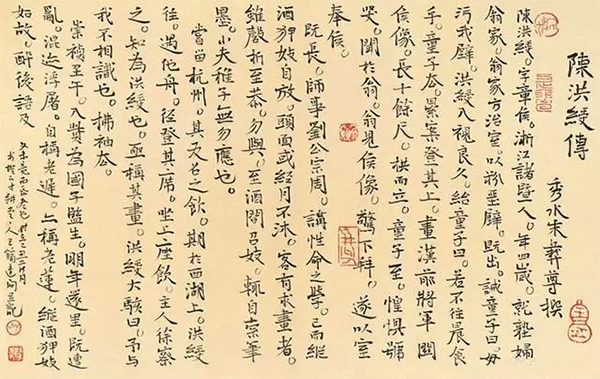 陳洪綬傳
秀水朱彝尊撰
陳洪綬。字章侯。浙江諸暨人。年四歲。就塾婦
翁家。翁家方治室。以粉堊壁。既出。誡童子曰。毋
污我壁。洪綬入視良久。紿童子曰。若不往晨食
乎。童子去。累案登其上。畫漢前將軍關
侯像。長十餘尺。拱而立。童子至。惶懼號
哭。聞於翁。翁見侯像。驚下拜。遂以室
奉侯。
既長。師事劉公宗周。講性命之學。已而縱
酒狎妓自放。頭面或經月不沐。客有求畫者。
雖罄折至恭。勿與。至酒間召妓。輒自索筆
墨。小夫稚子無勿應也。
嘗留杭州。其友召之飲。期於西湖上。洪綬
往。遇他舟。徑登其上席。坐上座飲。主人徐察
之。知為洪綬也。亟稱其畫。洪綬大駭曰。子與
我不相識也。拂袖去。
崇禎壬午。入貲為國子監生。明年還里。既遭
亂。混迹浮屠。自稱老遲。亦稱老蓮。縱酒狎妓
如故。醉後語及